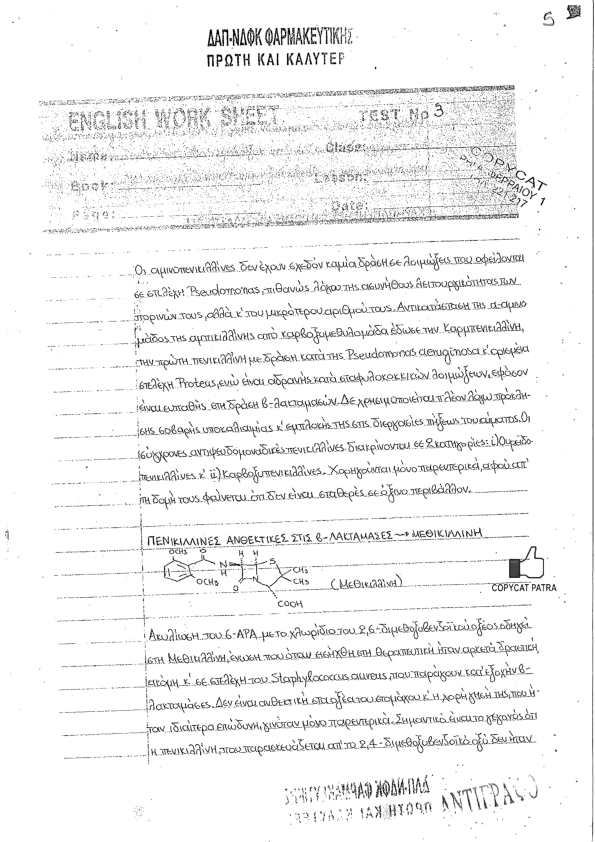 5
ΔΑΠ-ΝΔΦΚ ΦΑΡΜΑΚΕΥΤΙΚΗΣ
ΠΡΩΤΗ ΚΑΙ ΚΑΛΥΤΕΡ
ENGLISH WORK SHEET TEST No 3
Name: Class:
Book: Lesson:
Page: Date:
COPYCAT
ΦΕΡΡΑΙΟΥ 1
217
Οι αμινοπενικιλλίνες δεν έχουν σχεδόν καμία δράση σε λοιμώξεις που οφείλονται
σε στελέχη Pseudomonas, πιθανώς λόγω της ασυνήθους λειτουργικότητας των
πορινών τους, αλλά κ' του μικρότερου αριθμού τους. Αντικατάσταση της α-αμινο-
μάδος της αμπικιλλίνης από καρβοξυμεθυλομάδα έδωσε την Καρμπενικιλλίνη,
την πρώτη πενικιλλίνη με δράση κατά της Pseudomonas aeruginosa κ' ορισμένα
στελέχη Proteus, ενώ είναι αδρανής κατά σταφυλοκοκκικών λοιμώξεων, εφόσον
είναι ευπαθής στη δράση β-λακταμασών. Δε χρησιμοποιείται πλέον λόγω πρόκλη-
σης σοβαρής υποκαλιαιμίας κ' εμπλοκής της στις διεργασίες πήξεως του αίματος. Οι
σύγχρονες αντιψευδομοναδικές πενικιλλίνες διακρίνονται σε 2 κατηγορίες: i) Ουρεϊδο-
πενικιλλίνες κ' ii) Καρβοξυπενικιλλίνες. Χορηγούνται μόνο παρεντερικά, αφού απ'
τη δομή τους φαίνεται ότι δεν είναι σταθερές σε όξινο περιβάλλον.
ΠΕΝΙΚΙΛΛΙΝΕΣ ΑΝΘΕΚΤΙΚΕΣ ΣΤΙΣ β-ΛΑΚΤΑΜΑΣΕΣ → ΜΕΘΙΚΙΛΛΙΝΗ
OCH3 O H H H S CH3
N
OCH3 O N CH3
COOH
(Μεθικιλλίνη)
COPYCAT PATRA
Ακυλίωση του 6-APA με το χλωρίδιο του 2,6-διμεθοξυβενζοϊκού οξέος οδηγεί
στη Μεθικιλλίνη, ένωση που όταν εισήχθη στη θεραπευτική ήταν αρκετά δραστική,
ακόμη κ' σε στελέχη του Staphylococcus aureus, που παράγουν κατ' εξοχήν β-
λακταμάσες. Δεν είναι ανθεκτική στα οξέα του στομάχου κ' η χορήγησή της, που ή-
ταν ιδιαίτερα επώδυνη, γινόταν μόνο παρεντερικά. Σημαντικό είναι το γεγονός ότι
η πενικιλλίνη, που παρασκευάζεται απ' το 2,4-διμεθοξυβενζοϊκό οξύ δεν ήταν
ΔΑΠ-ΝΔΦΚ ΦΑΡΜΑΚΕΥΤΙΚΗΣ
ΠΡΩΤΗ ΚΑΙ ΚΑΛΥΤΕΡ
ΑΝΤΙΓΡΑΦΟ